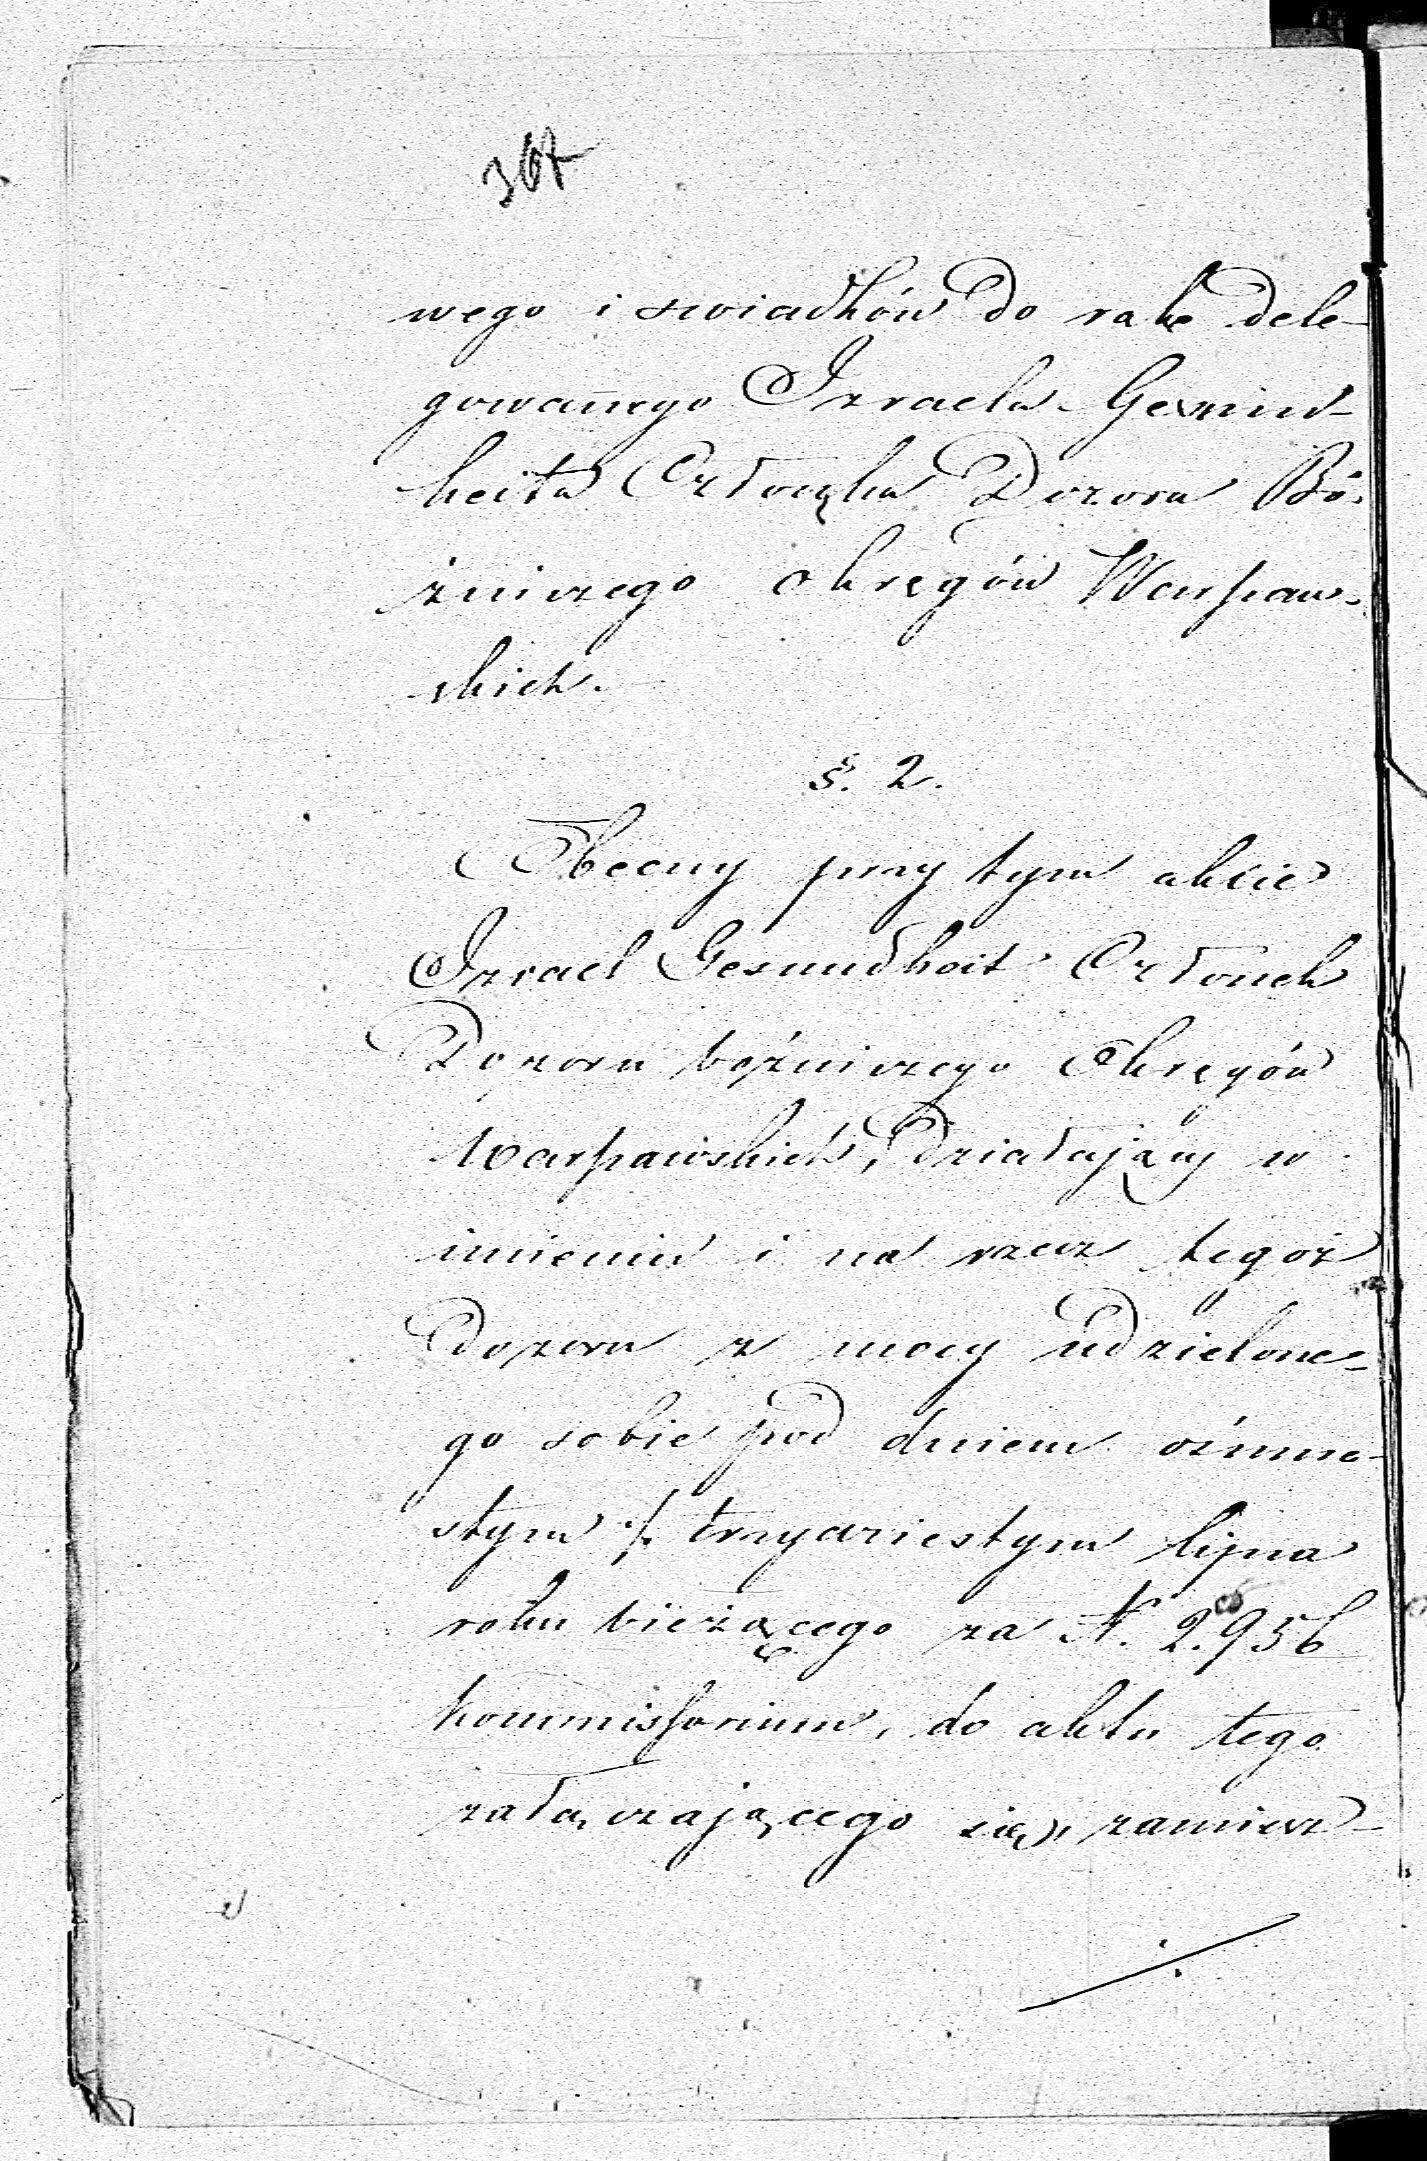 367
wego i swiadków do rąk dele-
gowanego Izraela Gesund-
heita Członka Dozoru Bó-
żniczego okręgów Warszaw-
skich.
§. 2.
Obecny przy tym akcie
Izrael Gesundheit Członek
Dozoru bóżniczego Okręgów
Warszawskich, działający w
imieniu i na rzecz tegoż
Dozoru z mocy udzielone-
go sobie pod dniem ośmna-
stym /. trzydziestym lipca
roku bieżącego za N. 2.956
kommissorium, do aktu tego
załączającego się, zamiesz-